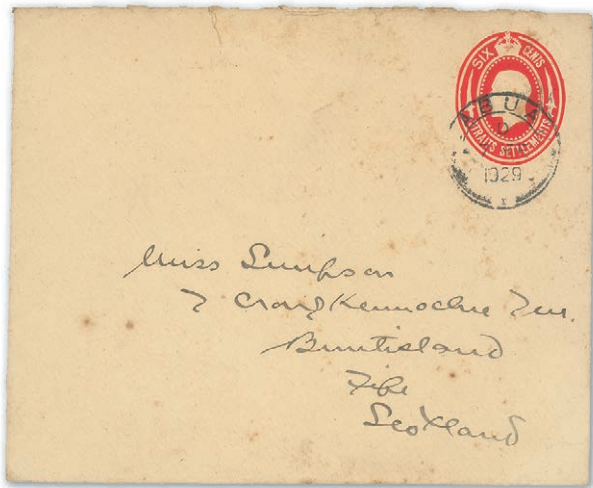 SIX CENTS
STRAITS SETTLEMENTS
LABUAN
1929
Miss Simpson
7 Craigkennochie Ter.
Burntisland
Fife
Scotland